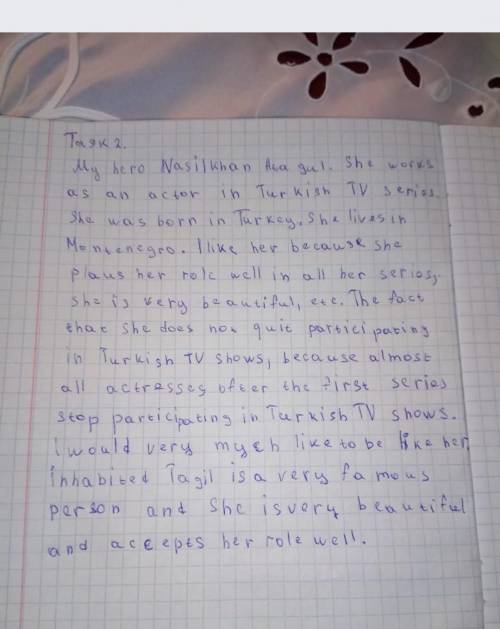 Таяк 2.
My hero Nasilkhan Ata gul. She works
as an actor in Turkish TV series.
She was born in Turkey. She lives in
Montenegro. I like her because she
plaus her role well in all her series,
she is very beautiful, etc. The fact
that she does not quit participating
in Turkish TV shows, because almost
all actresses ofter the first series
stop participating in Turkish TV shows.
i would very mych like to be like her.
inhabited Tagil is a very famous
person and she is very beautiful
and accepts her role well.